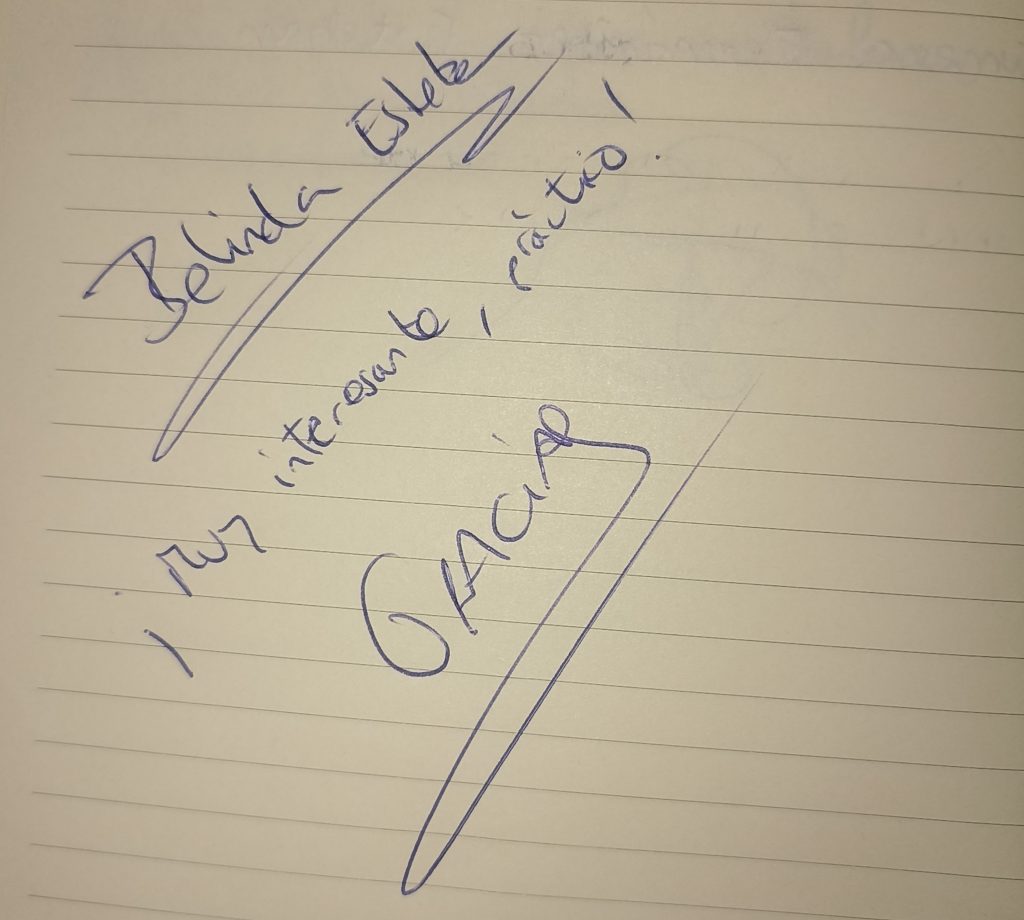 Belinda Esteba
¡Muy interesante, práctico!
GRACIAS